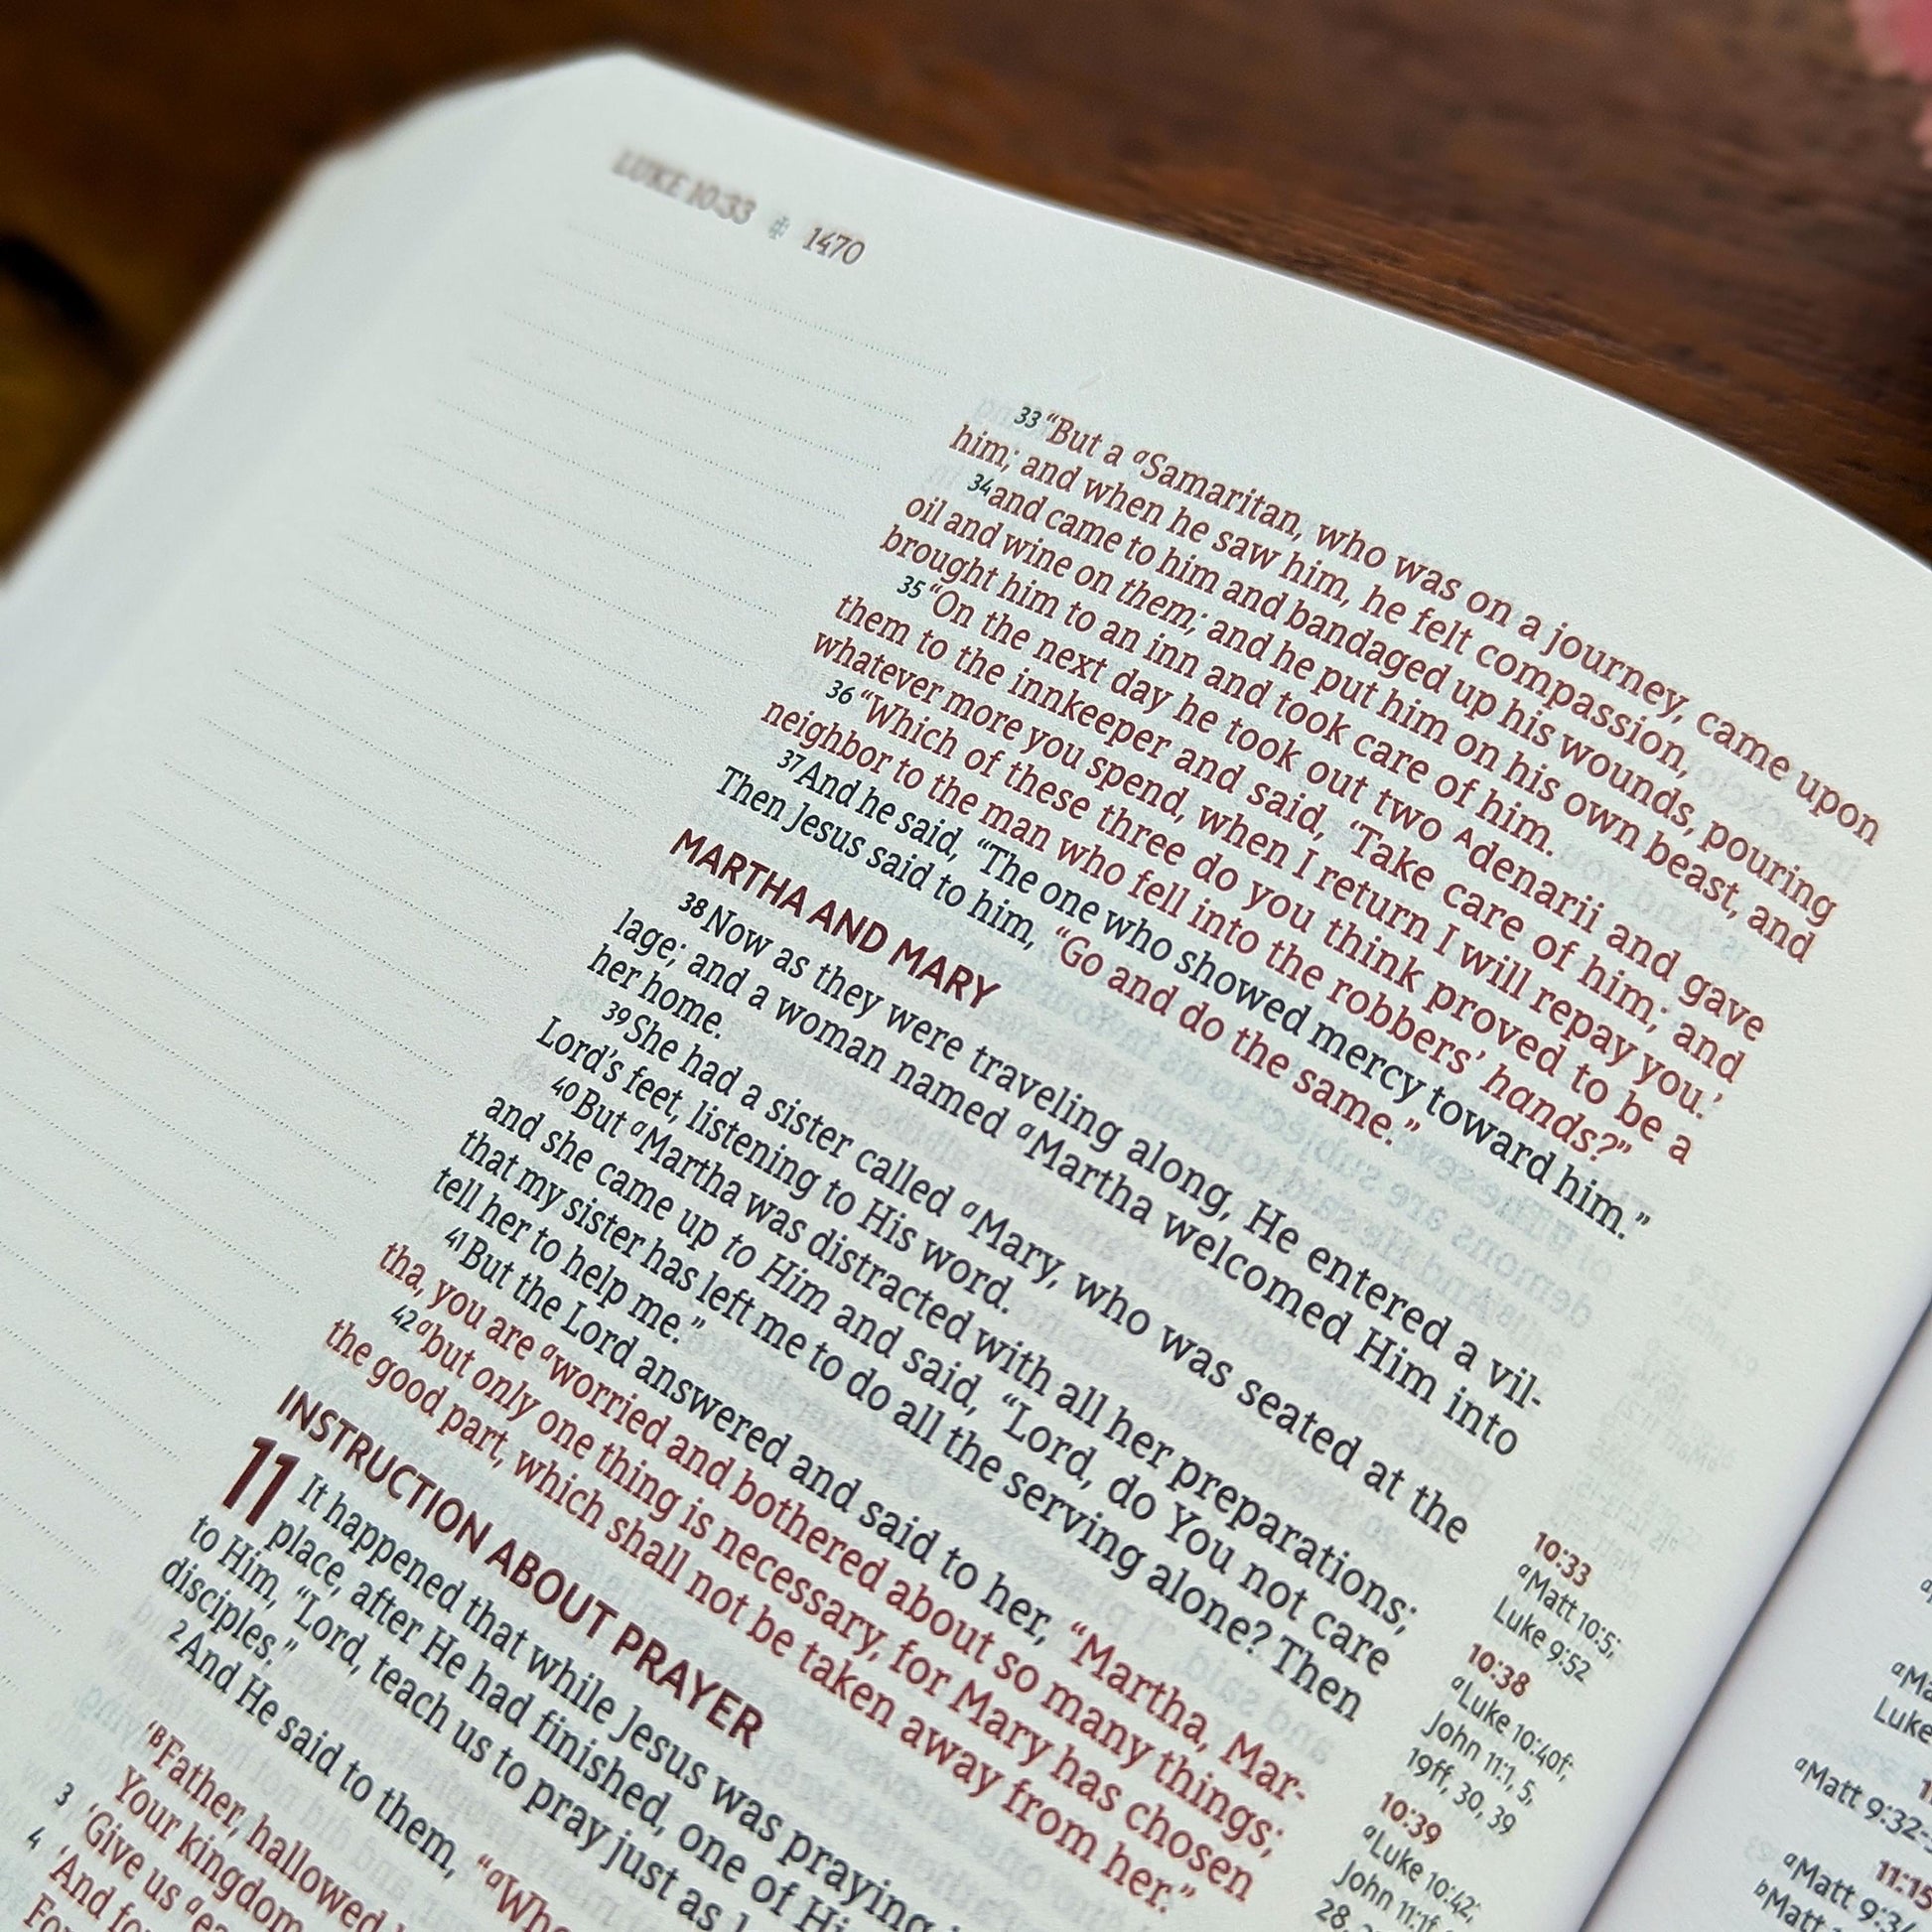 LUKE 10:33 ✠ 1470
33 “But a aSamaritan, who was on a journey, came upon
him; and when he saw him, he felt compassion,
34 and came to him and bandaged up his wounds, pouring
oil and wine on them; and he put him on his own beast, and
brought him to an inn and took care of him.
35 “On the next day he took out two Adenarii and gave
them to the innkeeper and said, ‘Take care of him; and
whatever more you spend, when I return I will repay you.’
36 “Which of these three do you think proved to be a
neighbor to the man who fell into the robbers’ hands?”
37 And he said, “The one who showed mercy toward him.”
Then Jesus said to him, “Go and do the same.”
MARTHA AND MARY
38 Now as they were traveling along, He entered a vil-
lage; and a woman named aMartha welcomed Him into
her home.
39 She had a sister called aMary, who was seated at the
Lord’s feet, listening to His word.
40 But aMartha was distracted with all her preparations;
and she came up to Him and said, “Lord, do You not care
that my sister has left me to do all the serving alone? Then
tell her to help me.”
41 But the Lord answered and said to her, “Martha, Mar-
tha, you are aworried and bothered about so many things;
42 abut only one thing is necessary, for Mary has chosen
the good part, which shall not be taken away from her.”
INSTRUCTION ABOUT PRAYER
11 It happened that while Jesus was praying
place, after He had finished, one of
to Him, “Lord, teach us to pray just as
disciples.”
2 And He said to them,
“BFather, hallowed
Your kingdom
3 ‘Give us
4 ‘And
10:33
aMatt 10:5;
Luke 9:52
10:38
aLuke 10:40f;
John 11:1, 5,
19ff, 30, 39
10:39
aLuke 10:42;
John 11:1f
28,
Luke
aMatt 9:32-
aMatt 9:34
bMatt